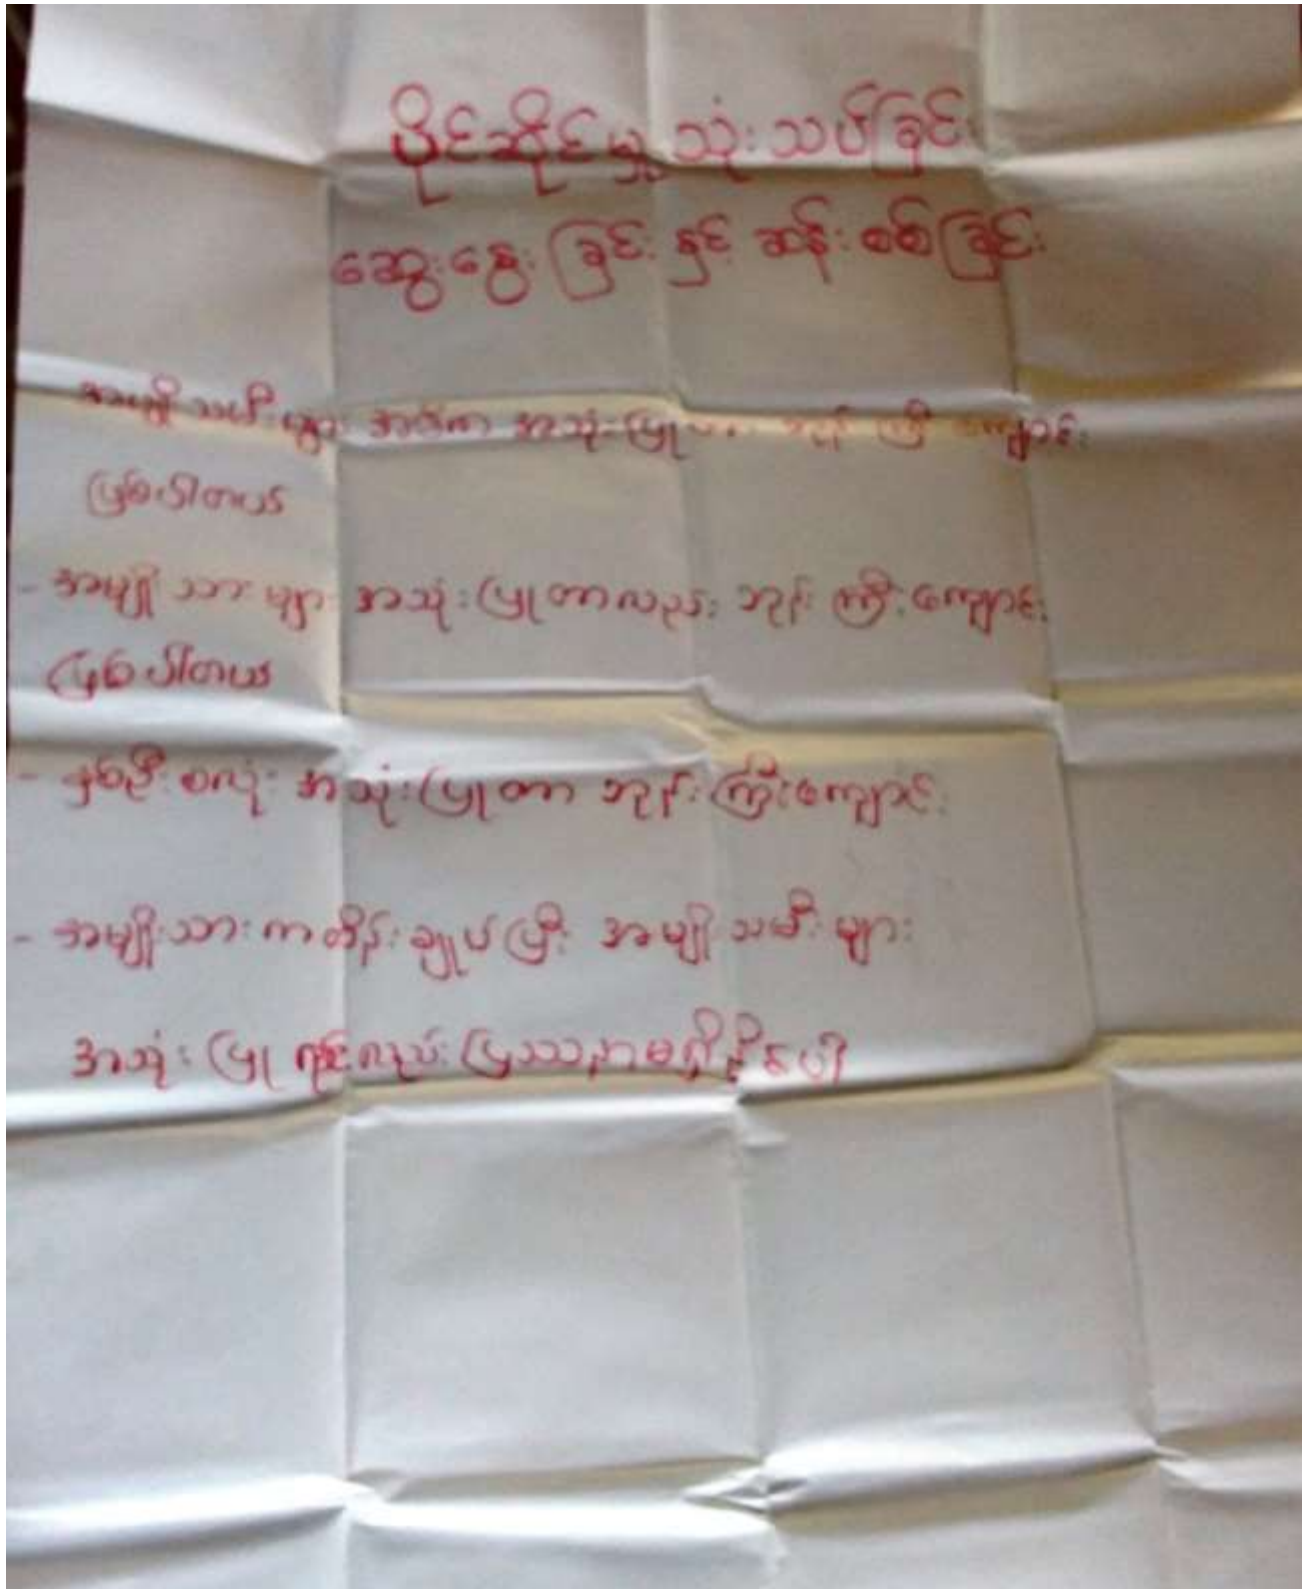 ပိုင်ဆိုင်မှု သုံးသပ်ခြင်း
ဆွေးနွေးခြင်း နှင့် ဆန်းစစ်ခြင်း
အမျိုးသမီးများ အဓိက အသုံးပြု ဘုန်းကြီးကျောင်း
ဖြစ်ပါတယ်
- အမျိုးသားများ အသုံးပြုတာလည်း ဘုန်းကြီးကျောင်း
ဖြစ်ပါတယ်
- နှစ်ဦးစလုံး အသုံးပြုတာ ဘုန်းကြီးကျောင်း
- အမျိုးသားကထိန်းချုပ်ပြီး အမျိုးသမီးများ
အသုံးပြုရင်လည်း ပြဿနာမရှိနိုင်ပါ